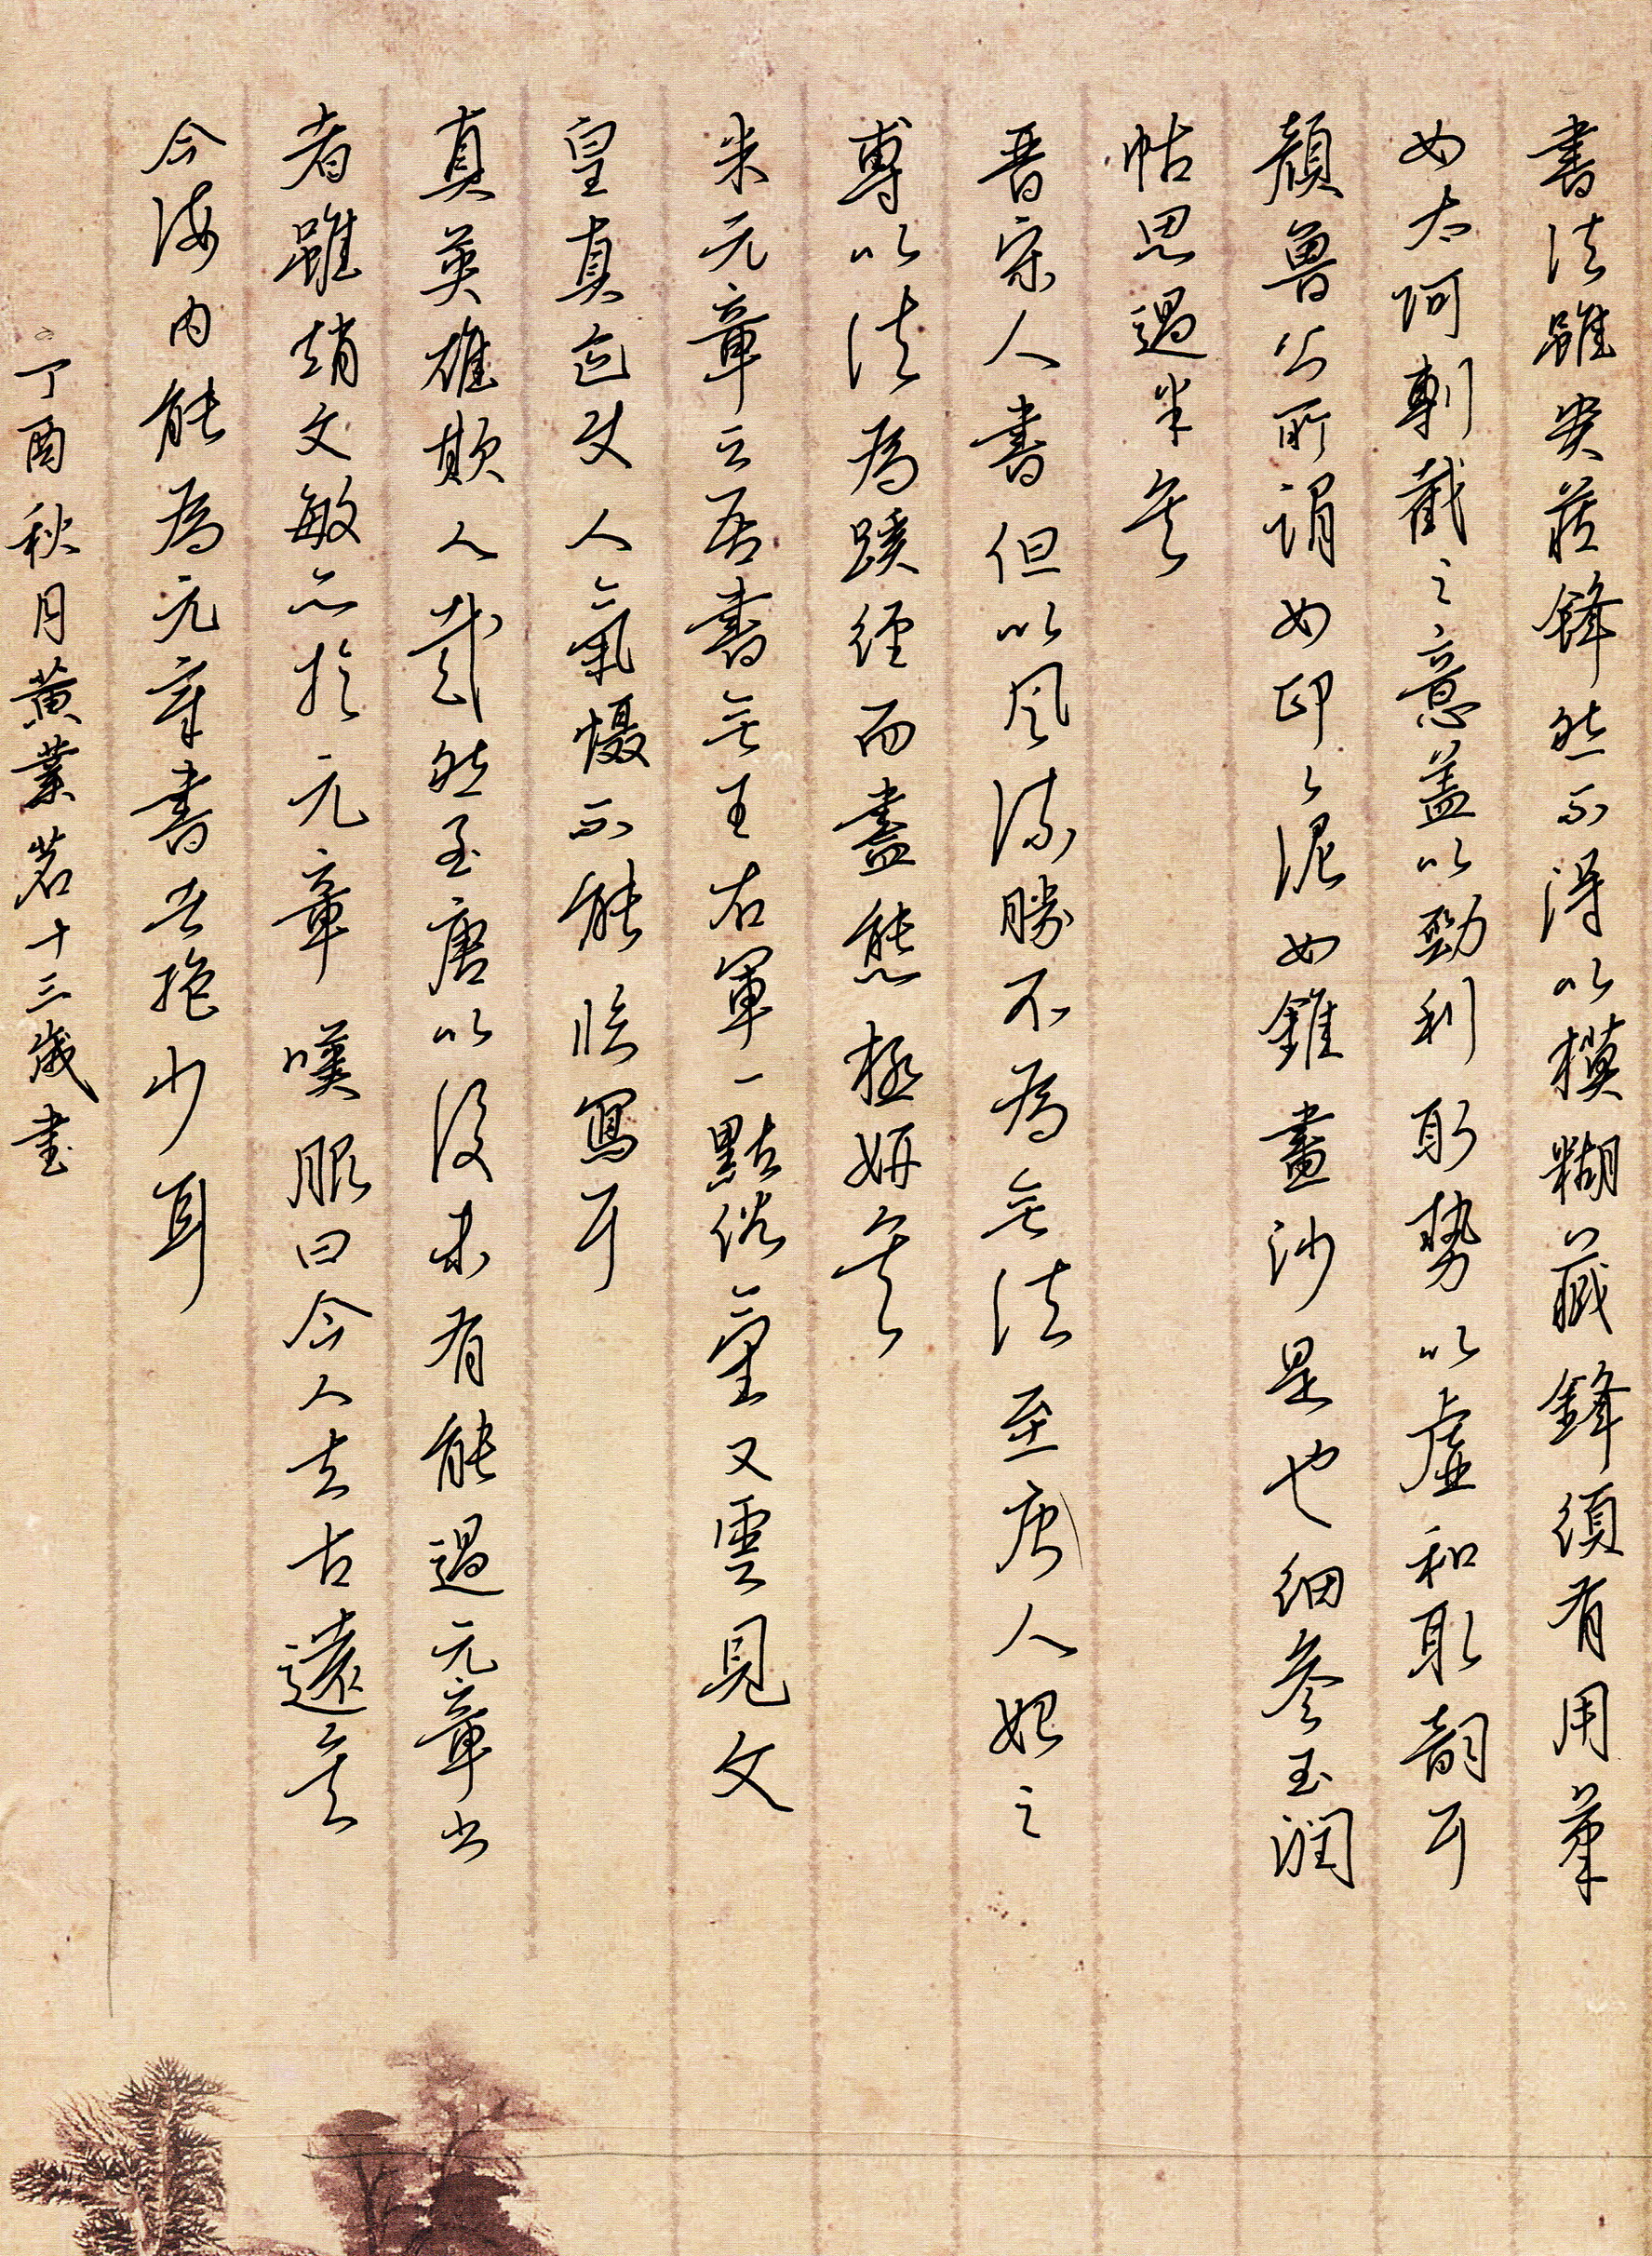 書法雖貴藏鋒然不得以模糊藏鋒須有用筆
如太阿剸截之意蓋以勁利取勢以虛和取韻耳
顏魯公所謂如印印泥如錐畫沙是也細參玉潤
帖思過半矣
晋宋人書但以风流勝不為無法至唐人始之
專以法為蹊徑而盡態極妍矣
米元章云吾書無王右軍一點俗氣又雲見文
皇真迹使人氣慑不能臨寫耳
真英雄欺人哉然至唐以後未有能過元章書
者雖趙文敏亦於元章嘆服曰今人去古遠矣
今海内能為元章書者絶少耳
丁酉秋月黄業茗十三歲書